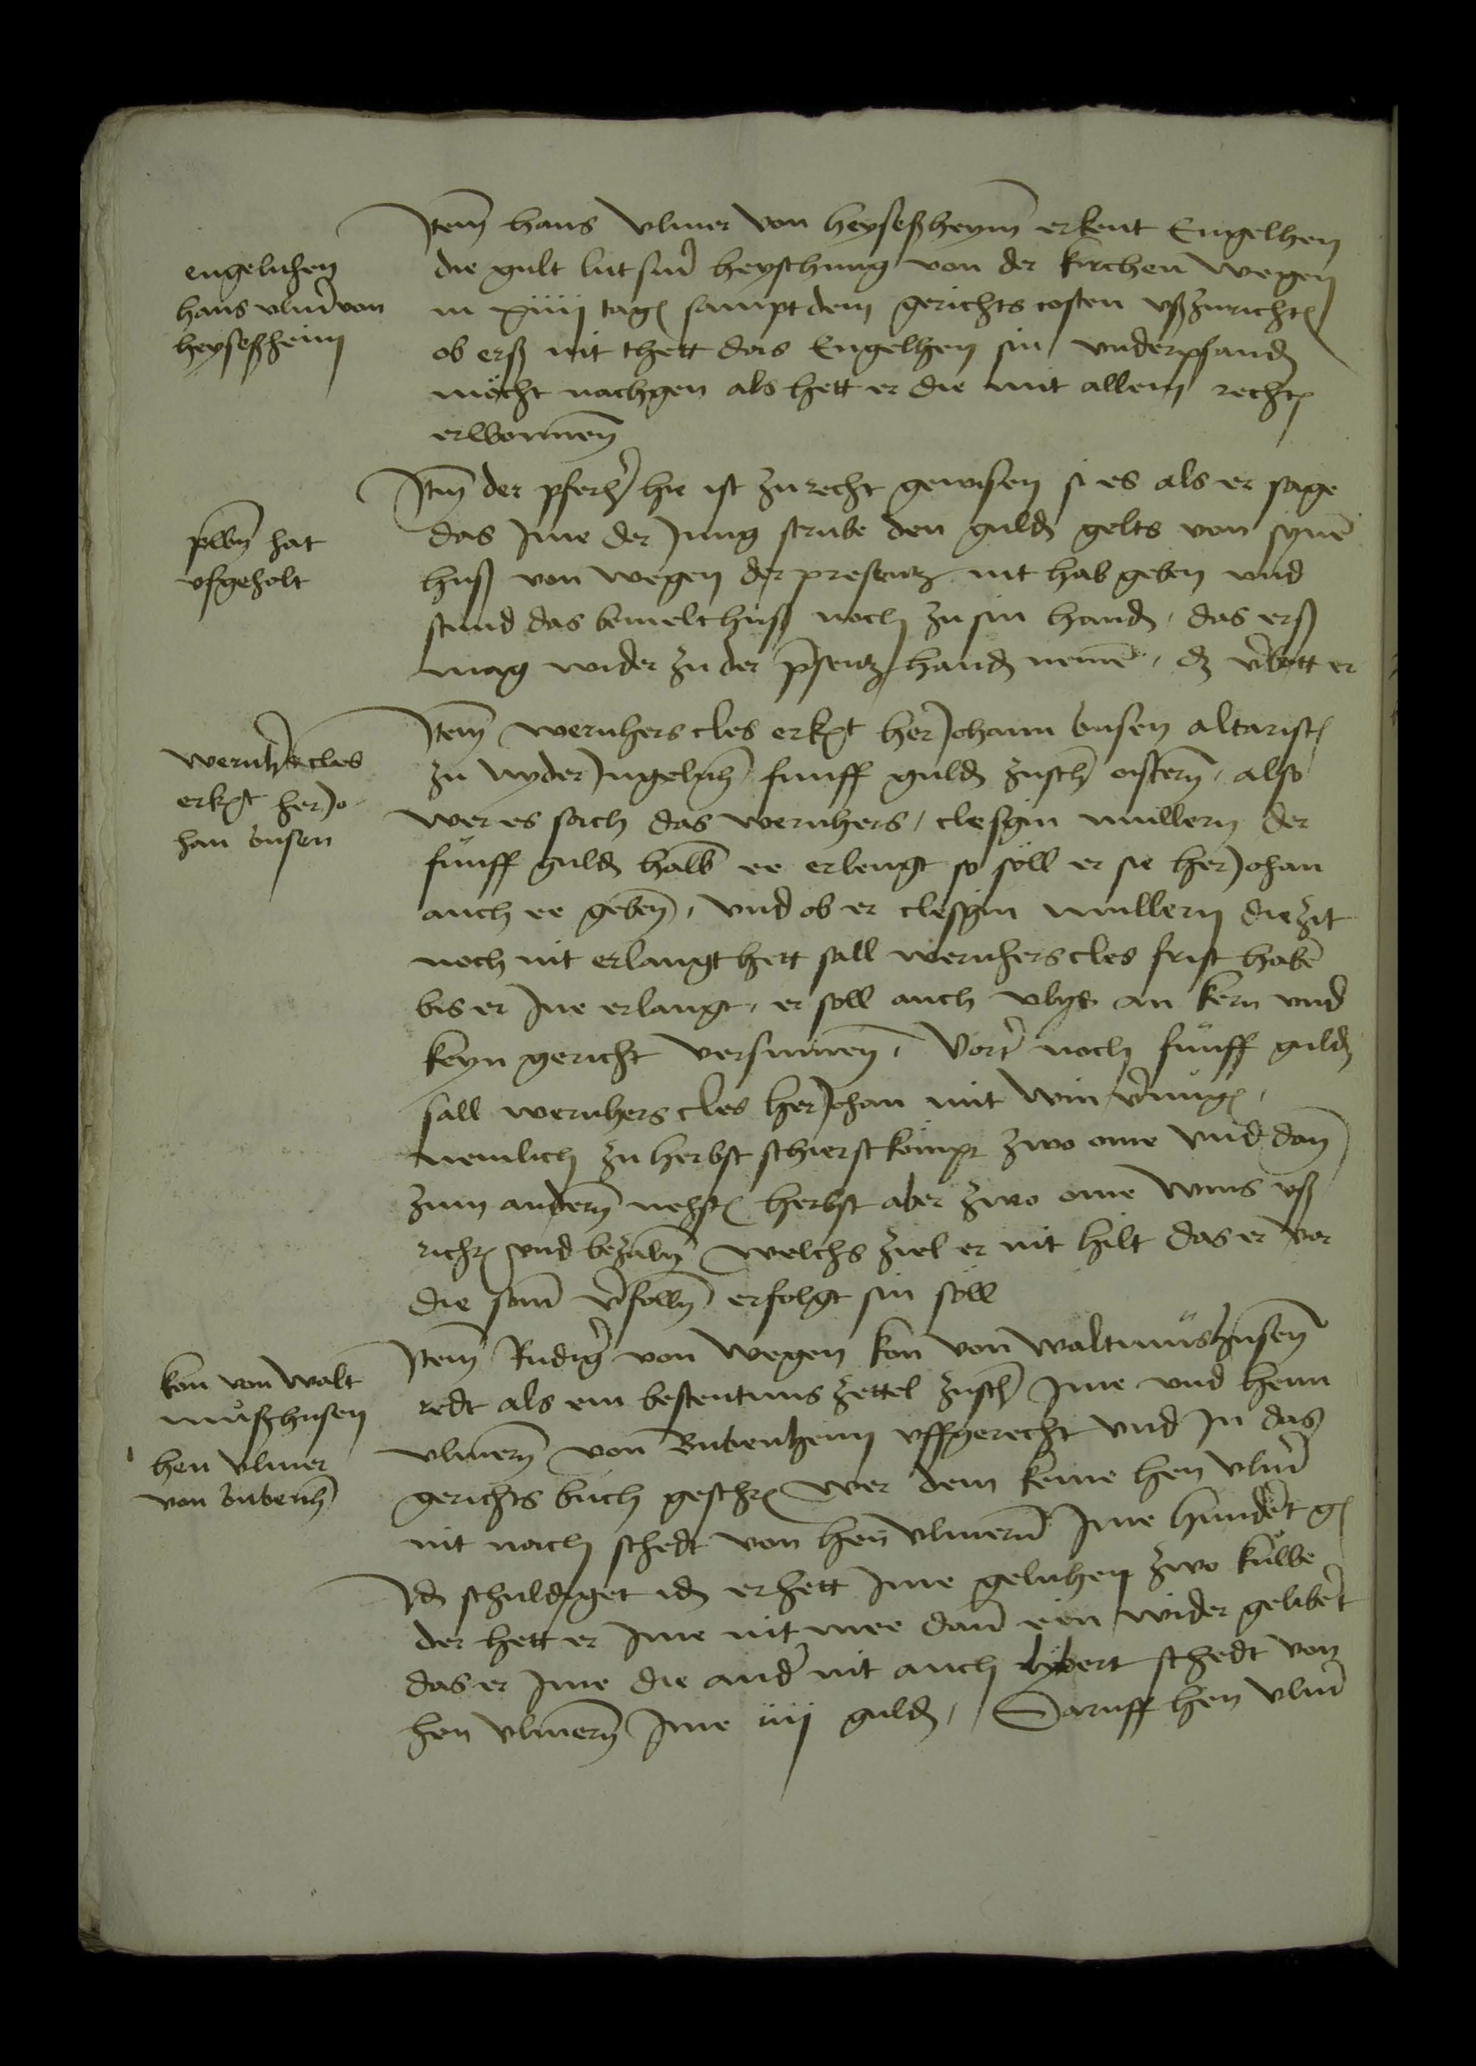 engelnhen
hans vlmer von
heyseßheim
Item hans vlmer von heyseßheym erkent Engelhen
die gult lut siner heyschung von der kirchen wegen
in xiiij tagen sampt dem gerichts costen vßzurichten
ob erß nit thett das Engelhen sin vnderpfand
möcht nachgen als hett er die mit allem rechten
erwonnen
plebanus hat
vfgeholt
Item der pferher hie ist zu recht gewisen si es als er sage
das Ime der Jung strube den gulden gelts von syme
huß von wegen der presentz nit hab geben vnd
stund das bemelt huß noch zu sin handen, das erß
mag wider zu der presentz handen nemen, das verbott er
wernhers cles
erkent her Jo-
han busen
Item wernhers cles erkent her Johann busen altaristen
zu nyder Ingelnheim funff gulden zuschen ostern, also
wer es sach das wernhers, clesgin mullern der
fünff gulden halb ee erlengt so söll er sie her Johan
auch ee geben, vnd ob er clesgin mullern die zit
noch nit erlangt hett sall wernhers cles frist haben
bis er Ine erlangt, er soll auch vlyß an kern vnd
keyn gericht versumen, Vorter noch fünff gulden
sall wernhers cles her Johan mit win vernugen,
nemlich zu herbst schierst kompt zwo ome vnd dan
zum andern nehsten herbst aber zwo ome wins vß
richten vnd bezaln welchs ziel er nit hilt das er vor
die som verfolln erfolgt sin söll
kon von walt
müßhusen
hen vlmer
von bubenheim
Item Rudiger von wegen kon von waltmüshusen
redt als ein bestentnus zettel zuschen Ime vnd henn
vlmern von Bubenheim vffgerecht vnd In das
gerichts buch geschrieben wer dem keme hen vlmer
nit nach schedt von hen vlmern Ime hundert gulden
Item schuldiget Idem er hett Ime geluhen zwo kulbe
der hett er Ime nit mee dann ein wider geliebert
das er Ime die ander nit auch lybert schedt von
hen vlmern Ime iiij gulden, Daruff hen vlmer